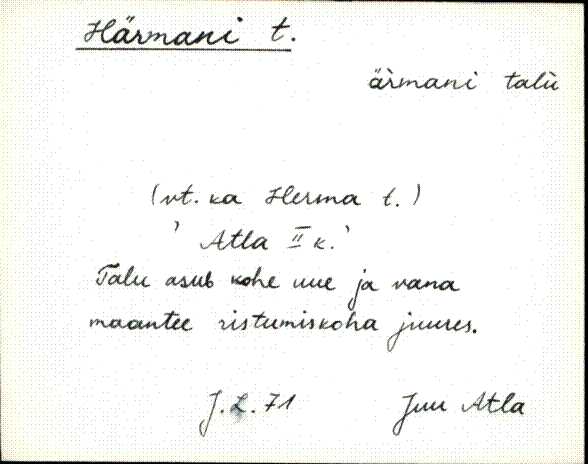 Härmani t.
ärmani talu
(vt. ka Herma t.)
' Atla II k.'
Talu asub kohe uue ja vana
maantee ristumiskoha juures.
J.L.71 Juu Atla